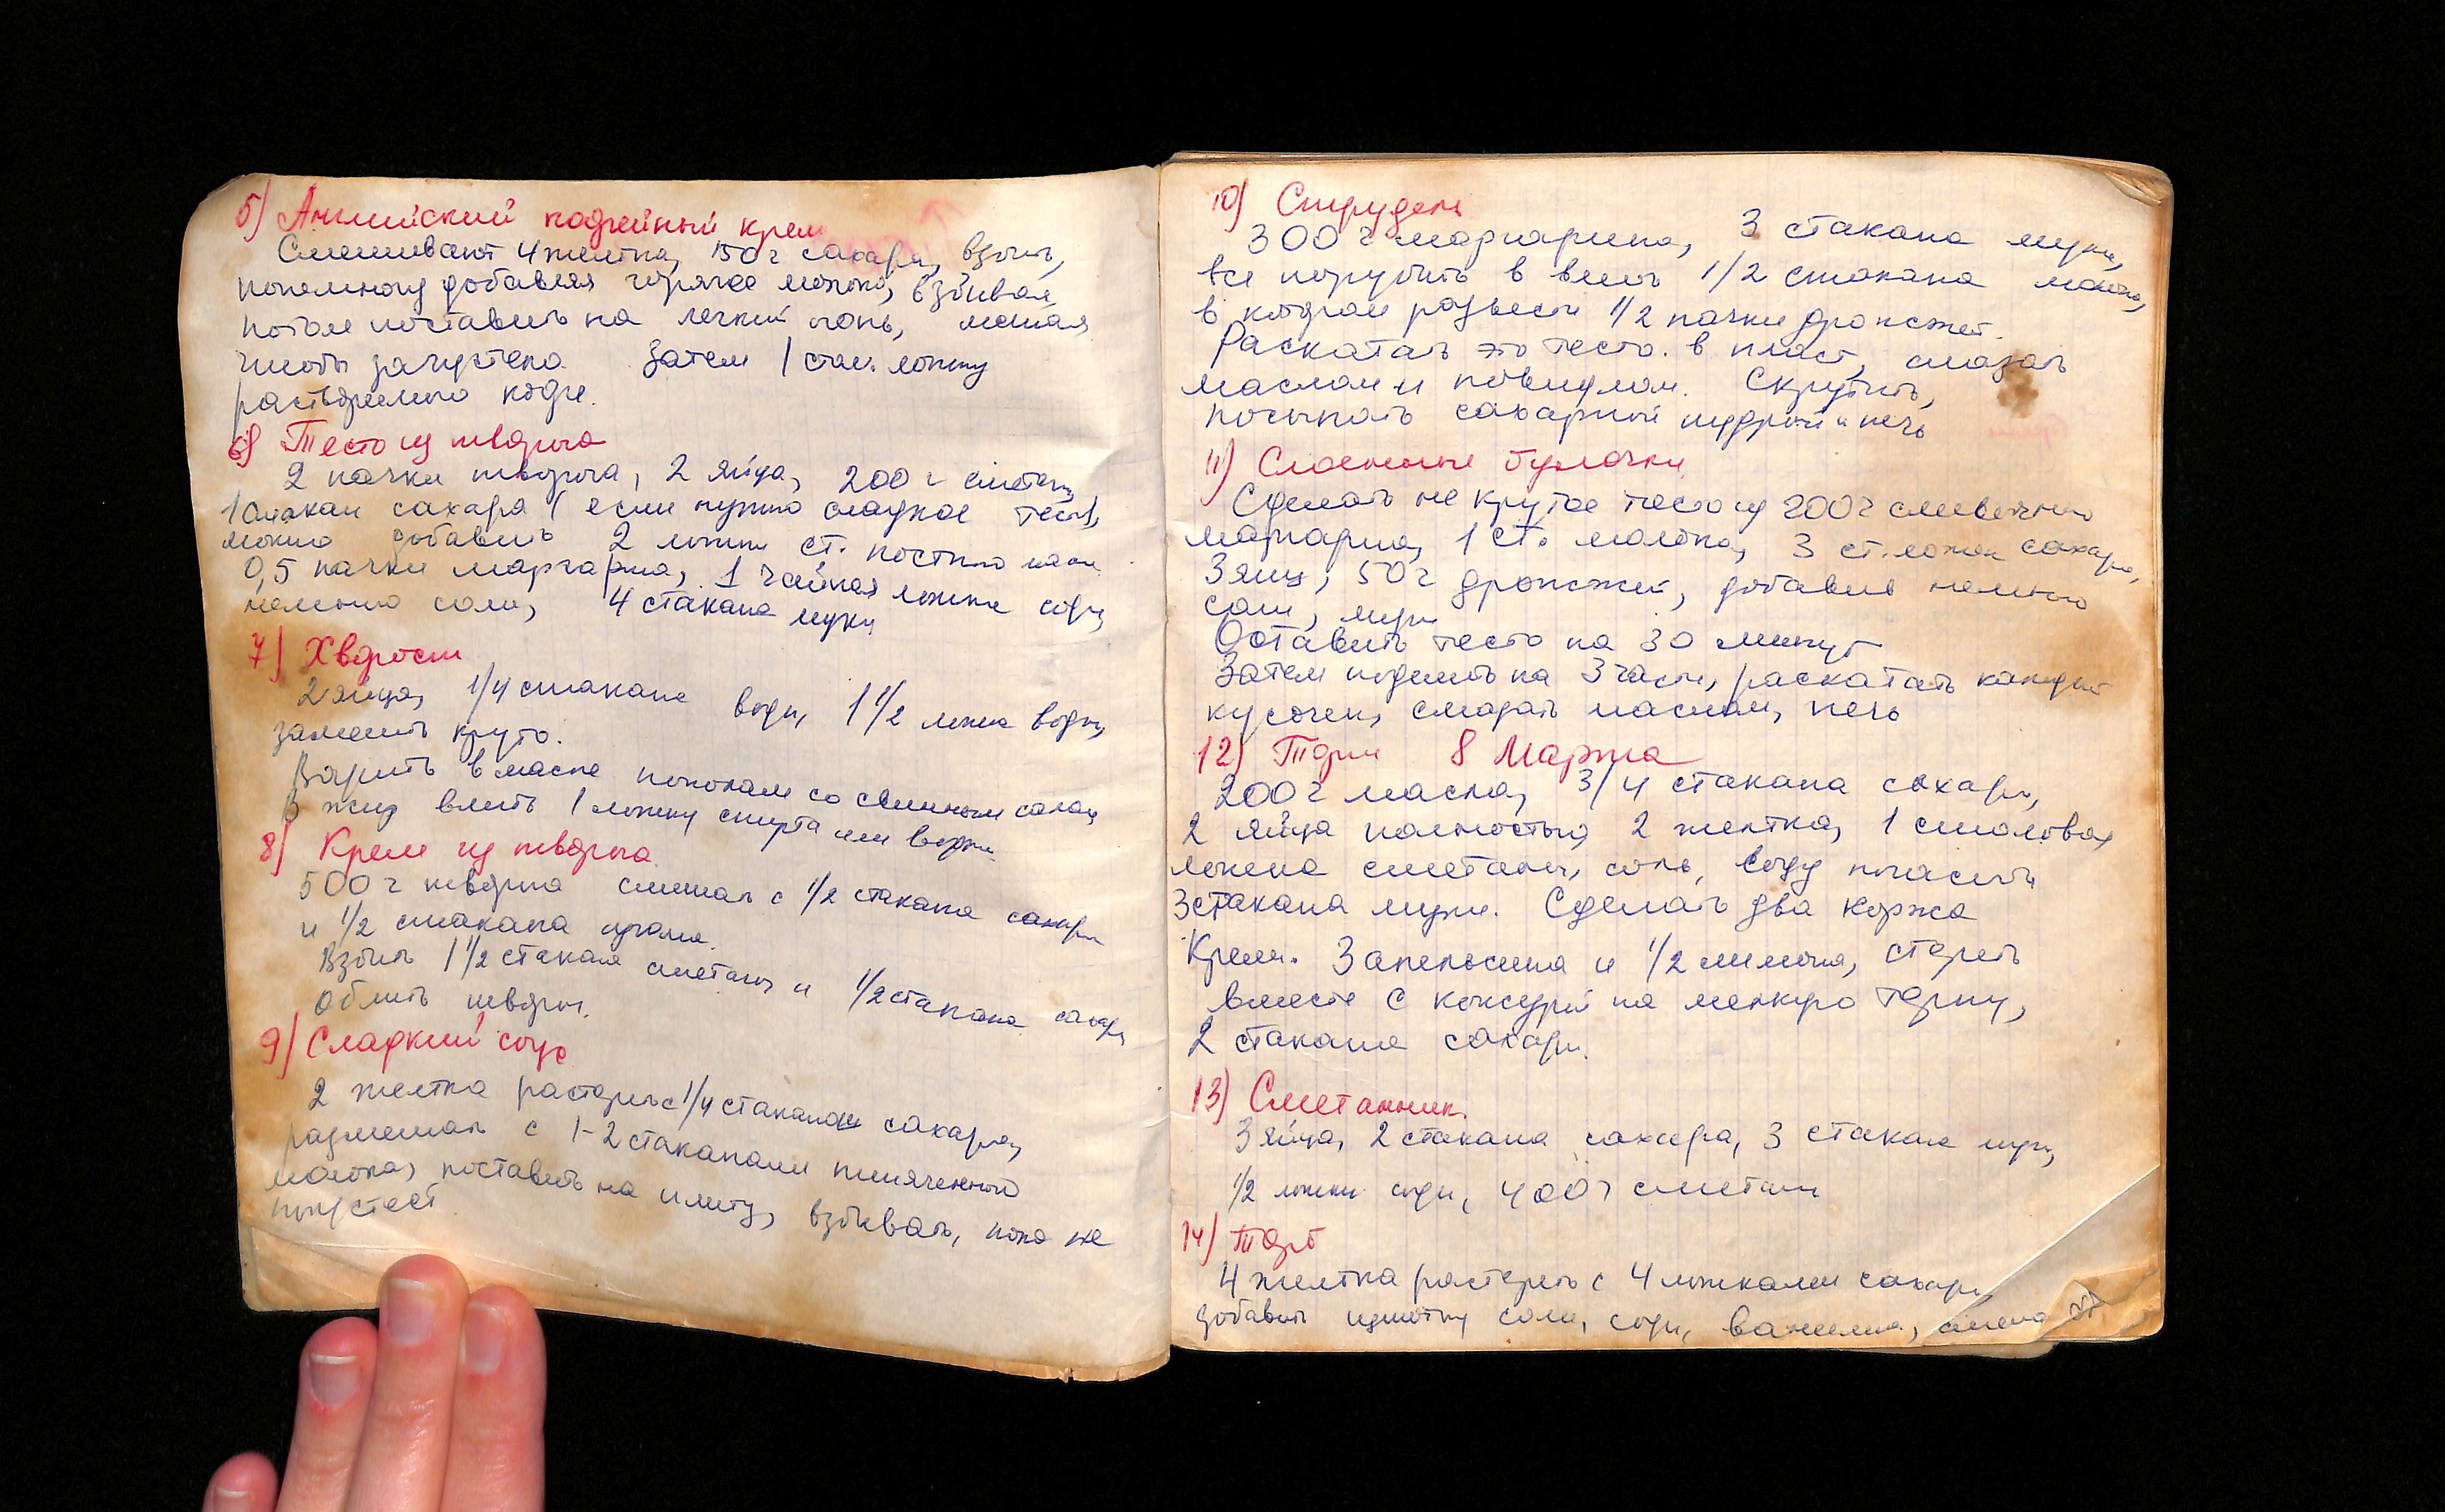 5) Английский кофейный крем
Смешивают 4 желтка, 150 г сахара, взбить,
понемногу добавляя горячее молоко, взбивая
потом поставить на легкий огонь, мешая
чтобы загустело. Затем 1 стол. ложку
растворимого кофе.
6) Тесто из творога
2 пачки творога, 2 яйца, 200 г сметаны,
1 стакан сахара (если нужно сладкое тесто),
можно добавить 2 ложки ст. постного масла
0,5 пачки маргарина, 1 чайная ложка соды,
немного соли, 4 стакана муки
7) Хворост
2 яйца, 1/4 стакана воды, 1 1/2 ложки водки,
замесить круто.
Варить в масле пополам со свиным салом,
В жир влить 1 ложку спирта или водки.
8) Крем из творога
500 г творога смешать с 1/2 стакана сахара
и 1/2 стакана изюма.
Взбить 1 1/2 стакана сметаны и 1/2 стакана сахара,
Облить творог.
9) Сладкий соус
2 желтка растереть с 1/4 стаканом сахара,
размешать с 1-2 стаканами кипяченного
молока, поставить на плиту, взбивать, пока не
погустеет
10) Струдель
300 г маргарина, 3 стакана муки,
все порубить в влить 1/2 стакана молока,
в котором развести 1/2 пачки дрожжей.
Раскатать это тесто в пласт, смазать
маслом и повидлом. Скрутить,
посыпать сахарной пудрой и печь
11) Слоенные булочки
Сделать не крутое тесто из 200 г сливочного
маргарина, 1 ст. молока, 3 ст. ложки сахара,
3 яиц, 50 г дрожжей, добавив немного
соли, муки
Оставить тесто на 30 минут
Затем поделить на 3 части, раскатать каждый
кусочек, смазать маслом, печь
12) Торт 8 Марта
200 г масла, 3/4 стакана сахара,
2 яйца полностью, 2 желтка, 1 столовая
ложка сметаны, соль, соду погасить
3 стакана муки. Сделать два коржа
Крем. 3 апельсина и 1/2 лимона, стереть
вместе с кожурой на мелкую терку,
2 стакана сахара.
13) Сметанник.
3 яйца, 2 стакана сахара, 3 стакана муки,
1/2 ложки соды, 400 г сметаны
14) Торт
4 желтка растереть с 4 ложками сахара,
добавить щепотку соли, соды, ванилина,